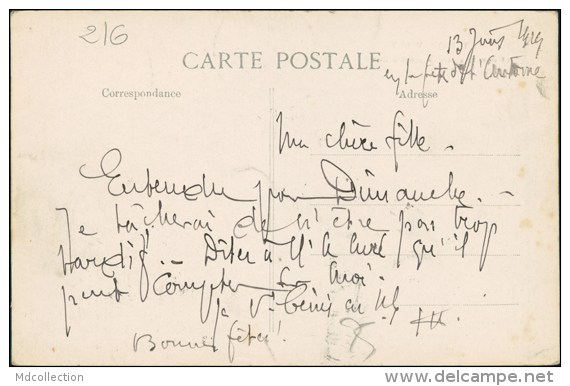 216
13 Juin
en la fête de St Antoine
CARTE POSTALE
Correspondance
Adresse
Ma chère fille -
Entendu pour Dimanche. -
Je tâcherai de n'être pas trop
tardif. - Dites à M' le Curé qu'il
peut compter sur moi.
Je v. bénis en N.S.
Bonnes fêtes!
Mdcollection
www.delcampe.net